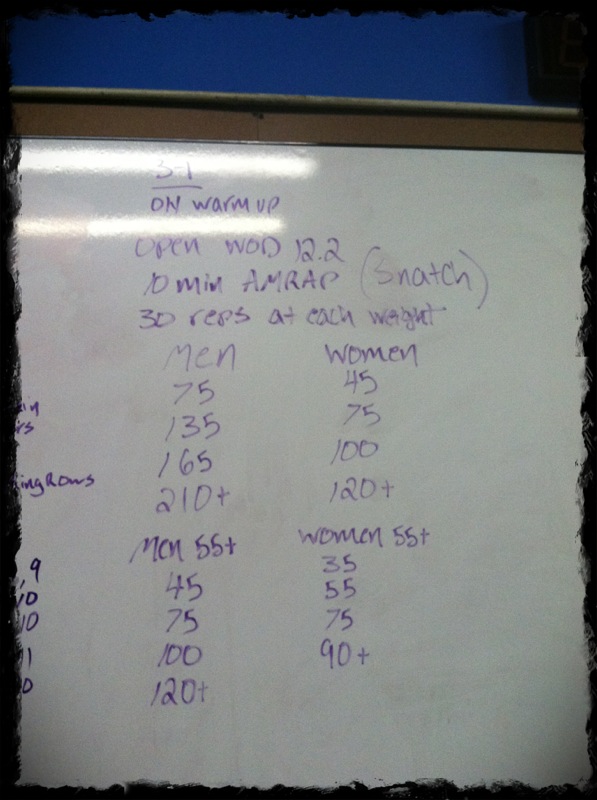 3-1
ON warm up
Open WOD 12.2
10 min AMRAP (Snatch)
30 reps at each weight
Men Women
75 45
135 75
165 100
210+ 120+
Men 55+ Women 55+
45 35
75 55
100 75
120+ 90+
ing Rows
,9
10
10